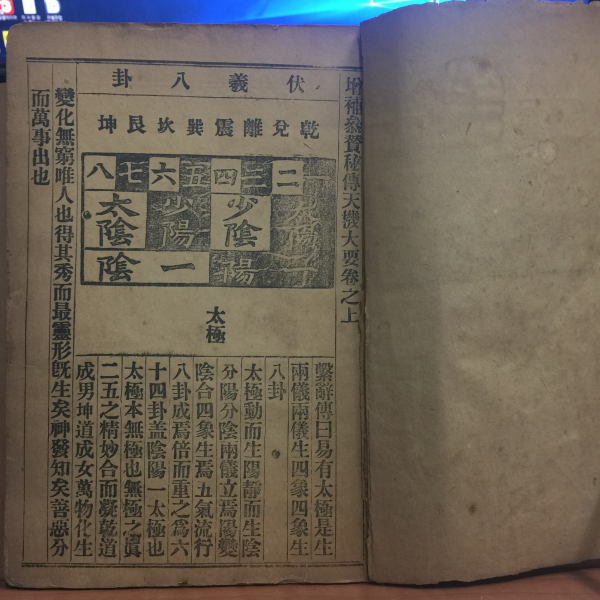 增補參贊秘傳天機大要卷之上
伏羲八卦
乾兌離震巽坎艮坤
一二三四五六七八
太陽少陰少陽太陰
陽一陰
太極
繫辭傳曰易有太極是生
兩儀兩儀生四象四象生
八卦
太極動而生陽靜而生陰
分陽分陰兩儀立焉陽變
陰合四象生焉五氣流行
八卦成焉倍而重之爲六
十四卦盖陰陽一太極也
太極本無極也無極之眞
二五之精妙合而凝乾道
成男坤道成女萬物化生
變化無窮唯人也得其秀而最靈形旣生矣神發知矣善惡分
而萬事出也